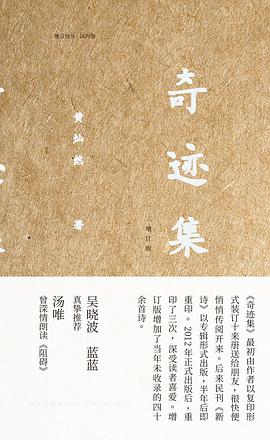 雅众诗丛·国内卷
奇迹集
增订版
黄灿然 著
《奇迹集》最初由作者以复印形
式装订十来册送给朋友,很快便
悄悄传阅开来。后来民刊《新
诗》以专辑形式出版,半年后即
重印。2012年正式出版后,重
印了三次,深受读者喜爱。增
订版增加了当年未收录的四十
余首诗。
吴晓波 蓝蓝
真挚推荐
汤唯
曾深情朗读《阻碍》